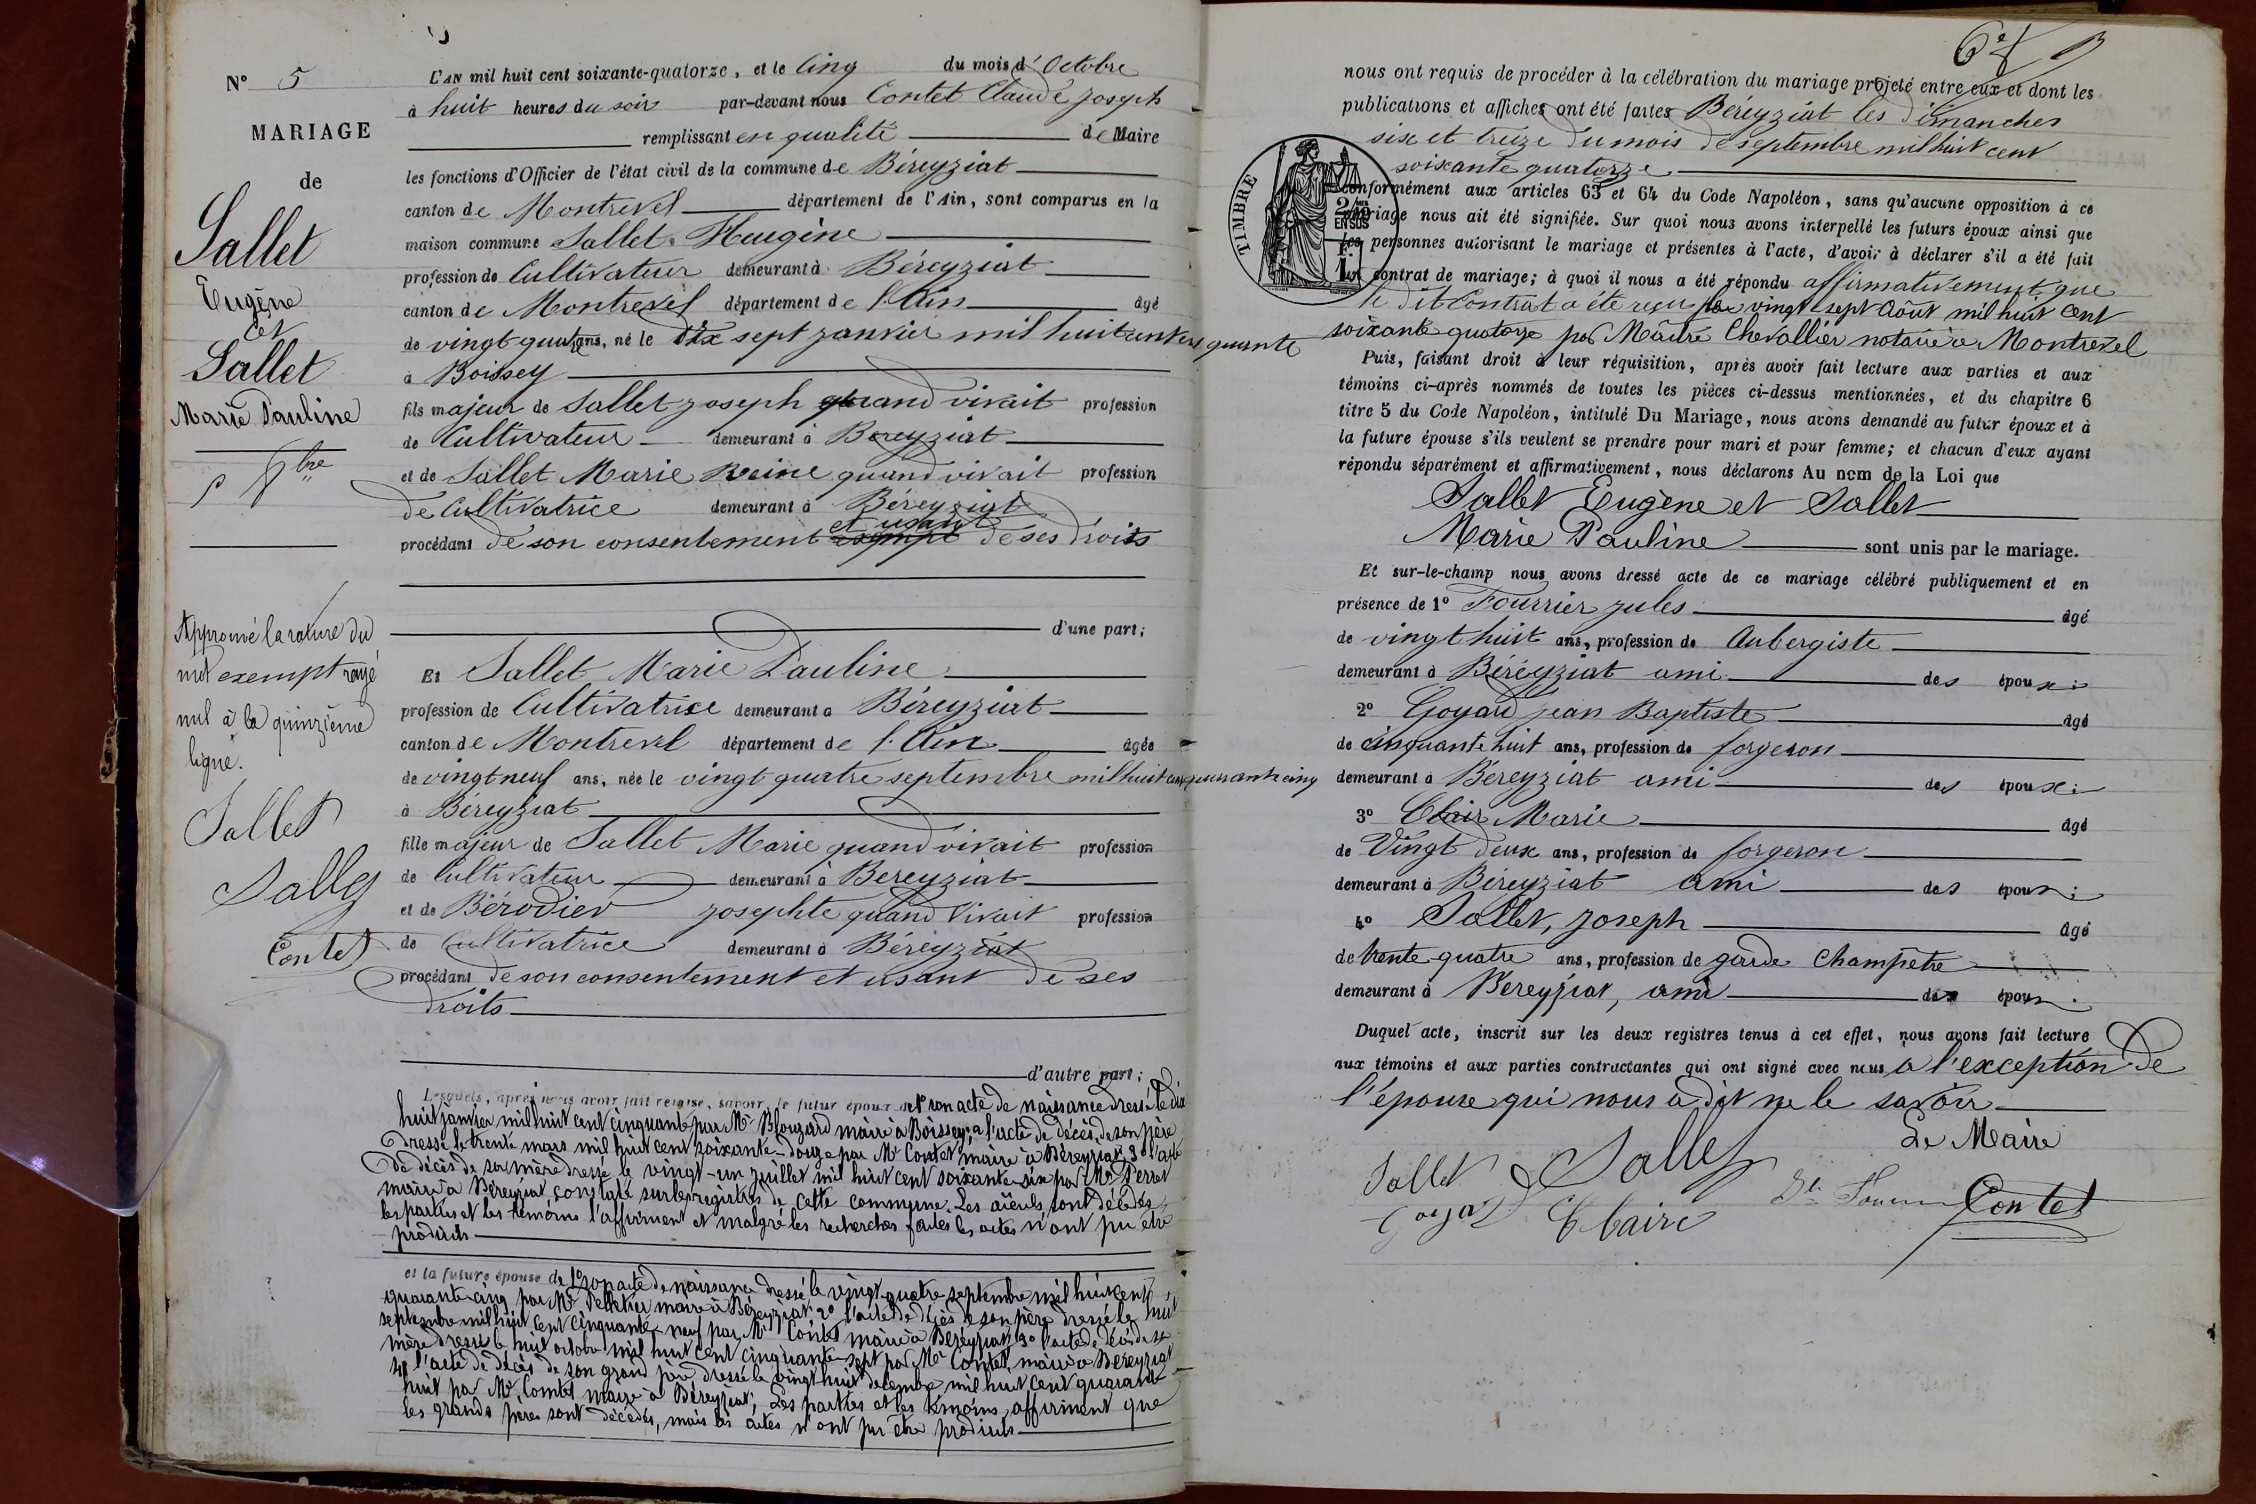 N° 5
MARIAGE
de
Sallet
Eugène
et
Sallet
Marie Pauline
Approuvé la rature du
mot exempt rayé
nul à la quinzième
ligne.
Sallet
Sallet
Contet
L'AN mil huit cent soixante-quatorze, et le Cinq du mois d'Octobre
à huit heures du soir par-devant nous Contet Claude Joseph
remplissant en qualité de Maire
les fonctions d'Officier de l'état civil de la commune de Béreyziat
canton de Montrevel département de l'Ain, sont comparus en la
maison commune Sallet Heugène
profession de Cultivateur demeurant à Béreyziat
canton de Montrevel département de l'Ain âgé
de vingt quatre ans, né le dix sept janvier mil huit cent cinquante
à Boissey
fils majeur de Sallet Joseph quand vivait profession
de Cultivateur demeurant à Bereyziat
et de Sallet Marie Reine quand vivait profession
de Cultivatrice demeurant à Béreyziat
et usant
procédant de son consentement exempt de ses droits
d'une part;
Et Sallet Marie Pauline
profession de Cultivatrice demeurant à Béreyziat
canton de Montrevel département de l'Ain âgée
de vingt neuf ans, née le vingt quatre septembre mil huit cent quarante cinq
à Béreyziat
fille majeur de Sallet Marie quand vivait profession
de Cultivateur demeurant à Béreyziat
et de Bérodier Josephte quand vivait profession
de Cultivatrice demeurant à Béreyziat
procédant de son consentement et usant de ses
droits
d'autre part;
Lesquels, après nous avoir fait remise, savoir, le futur époux de 1° son acte de naissance dressé le dix
huit janvier mil huit cent cinquante par Mr Blouzard maire à Boissey; 2° l'acte de décès de son père
dressé le trente mars mil huit cent soixante-douze par Mr Contet maire à Béreyziat, 3° l'acte
de décès de sa mère dressé le vingt-un juillet mil huit cent soixante-six par Mr Perret
maire à Béreyziat, constaté sur les registres de cette commune. Les aïeuls sont décédés,
les parties et les témoins l'affirment et malgré les recherches faites les actes n'ont pu être
produits
et la future épouse de 1° son acte de naissance dressé le vingt-quatre septembre mil huit cent
quarante-cinq par Mr Pelletier maire à Béreyziat 2° l'acte de décès de son père dressé le huit
septembre mil huit cent cinquante-neuf par Mr Contet maire à Béréyziat 3° l'acte de décès de sa
mère dressé le huit octobre mil huit cent cinquante-sept par Mr Contet, maire à Béreyziat
4° l'acte de décès de son grand père dressé le vingt huit décembre mil huit cent quarante
huit par Mr. Comtet maire à Béreyziat; Les parties et les témoins affirment que
les grands pères sont décédés, mais les actes n'ont pu être produits
6e
nous ont requis de procéder à la célébration du mariage projeté entre eux et dont les
publications et affiches ont été faites Beréyziat les dimanches
six et treize du mois de septembre mil huit cent
soixante quatorze
TIMBRE
2/10mes
EN SUS
conformément aux articles 63 et 64 du Code Napoléon, sans qu'aucune opposition à ce
mariage nous ait été signifiée. Sur quoi nous avons interpellé les futurs époux ainsi que
les personnes autorisant le mariage et présentes à l'acte, d'avoir à déclarer s'il a été fait
un contrat de mariage; à quoi il nous a été répondu affirmativement que
le dit Contrat a été reçu le vingt sept Août mil huit cent
soixante quatorze par Maître Chevallier notaire à Montrevel
Puis, faisant droit à leur réquisition, après avoir fait lecture aux parties et aux
témoins ci-après nommés de toutes les pièces ci-dessus mentionnées, et du chapitre 6
titre 5 du Code Napoléon, intitulé Du Mariage, nous avons demandé au futur époux et à
la future épouse s'ils veulent se prendre pour mari et pour femme; et chacun d'eux ayant
répondu séparément et affirmativement, nous déclarons Au nom de la Loi que
Sallet Eugène et Sallet
Marie Pauline sont unis par le mariage.
Et sur-le-champ nous avons dressé acte de ce mariage célébré publiquement et en
présence de 1° Fourrier Jules âgé
de vingt huit ans, profession de Aubergiste
demeurant à Béréyziat ami des époux;
2° Goyard Jean Baptiste âgé
de cinquante huit ans, profession de forgeron
demeurant à Béreyziat ami des époux;
3° Clair Marie âgé
de Vingt deux ans, profession de forgeron
demeurant à Béreyziat ami des époux;
4° Sallet, Joseph âgé
de trente quatre ans, profession de garde Champêtre
demeurant à Béreyziat, ami des époux.
Duquel acte, inscrit sur les deux registres tenus à cet effet, nous avons fait lecture
aux témoins et aux parties contractantes qui ont signé avec nous à l'exception de
l'épouse qui nous a dit ne le savoir
Le Maire
Sallet Sallet
Goyard Claire Contet